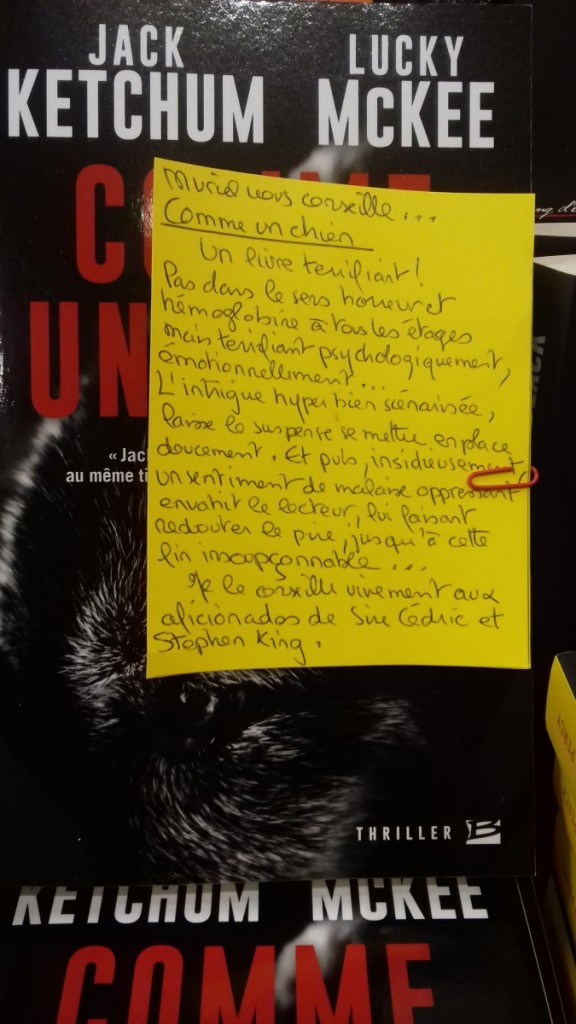 JACK
KETCHUM
LUCKY
McKEE
COMME
UN
Muriel nous conseille...
Comme un chien
Un livre terrifiant!
Pas dans le sens horreur et
hémoglobine à tous les étages
mais terrifiant psychologiquement,
émotionnellement...
L'intrigue hyper bien scénarisée,
laisse le suspense se mettre en place
doucement. Et puis, insidieusement
un sentiment de malaise oppressant
envahit le lecteur, lui faisant
redouter le pire, jusqu'à cette
fin insoupçonnable...
Je le conseille vivement aux
aficionados de Sire Cédric et
Stephen King.
« Jac
au même ti
THRILLER B
KETCHUM McKEE
COMME